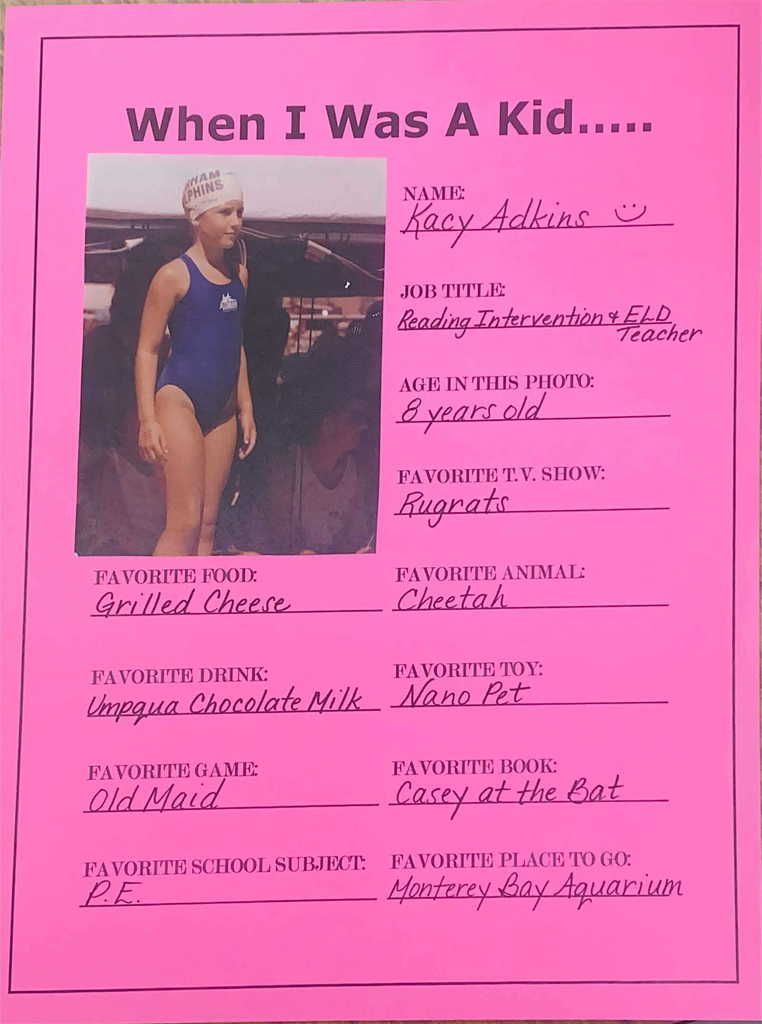 When I Was A Kid.....
HAM
PHINS
NAME:
Kacy Adkins
JOB TITLE:
Reading Intervention & ELD
Teacher
AGE IN THIS PHOTO:
8 years old
FAVORITE T.V. SHOW:
Rugrats
FAVORITE FOOD:
Grilled Cheese
FAVORITE ANIMAL:
Cheetah
FAVORITE DRINK:
Umpqua Chocolate Milk
FAVORITE TOY:
Nano Pet
FAVORITE GAME:
Old Maid
FAVORITE BOOK:
Casey at the Bat
FAVORITE SCHOOL SUBJECT:
P.E.
FAVORITE PLACE TO GO:
Monterey Bay Aquarium